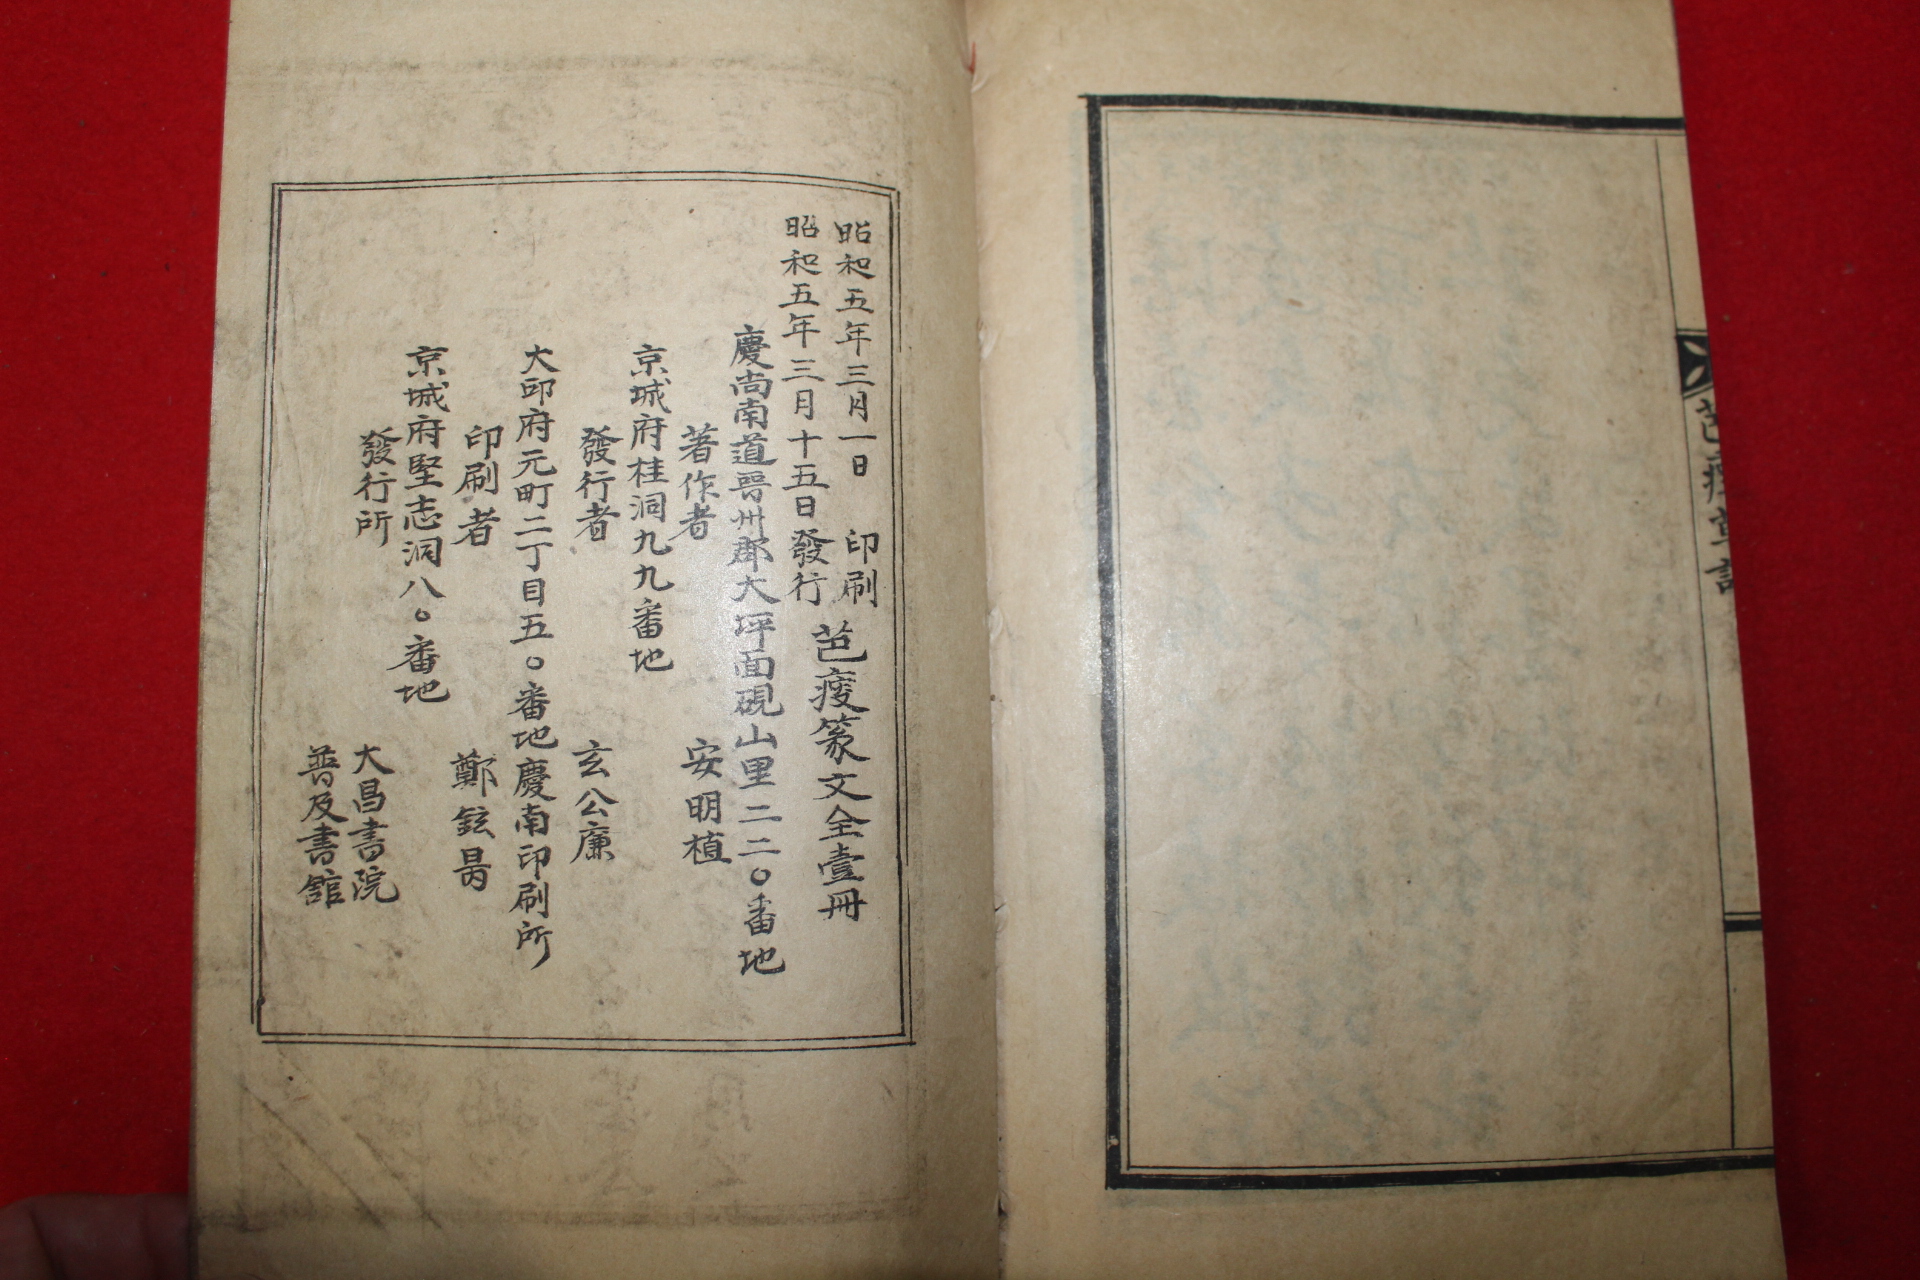 昭和五年三月一日 印刷
昭和五年三月十五日發行
芭㾗篆文全壹冊
慶尚南道晋州郡大坪面硯山里二二〇番地
著作者 安明植
京城府桂洞九九番地
發行者 玄公廉
大邱府元町二丁目五〇番地慶南印刷所
印刷者 鄭鉉
京城府堅志洞八〇番地
發行所 大昌書院
普及書舘